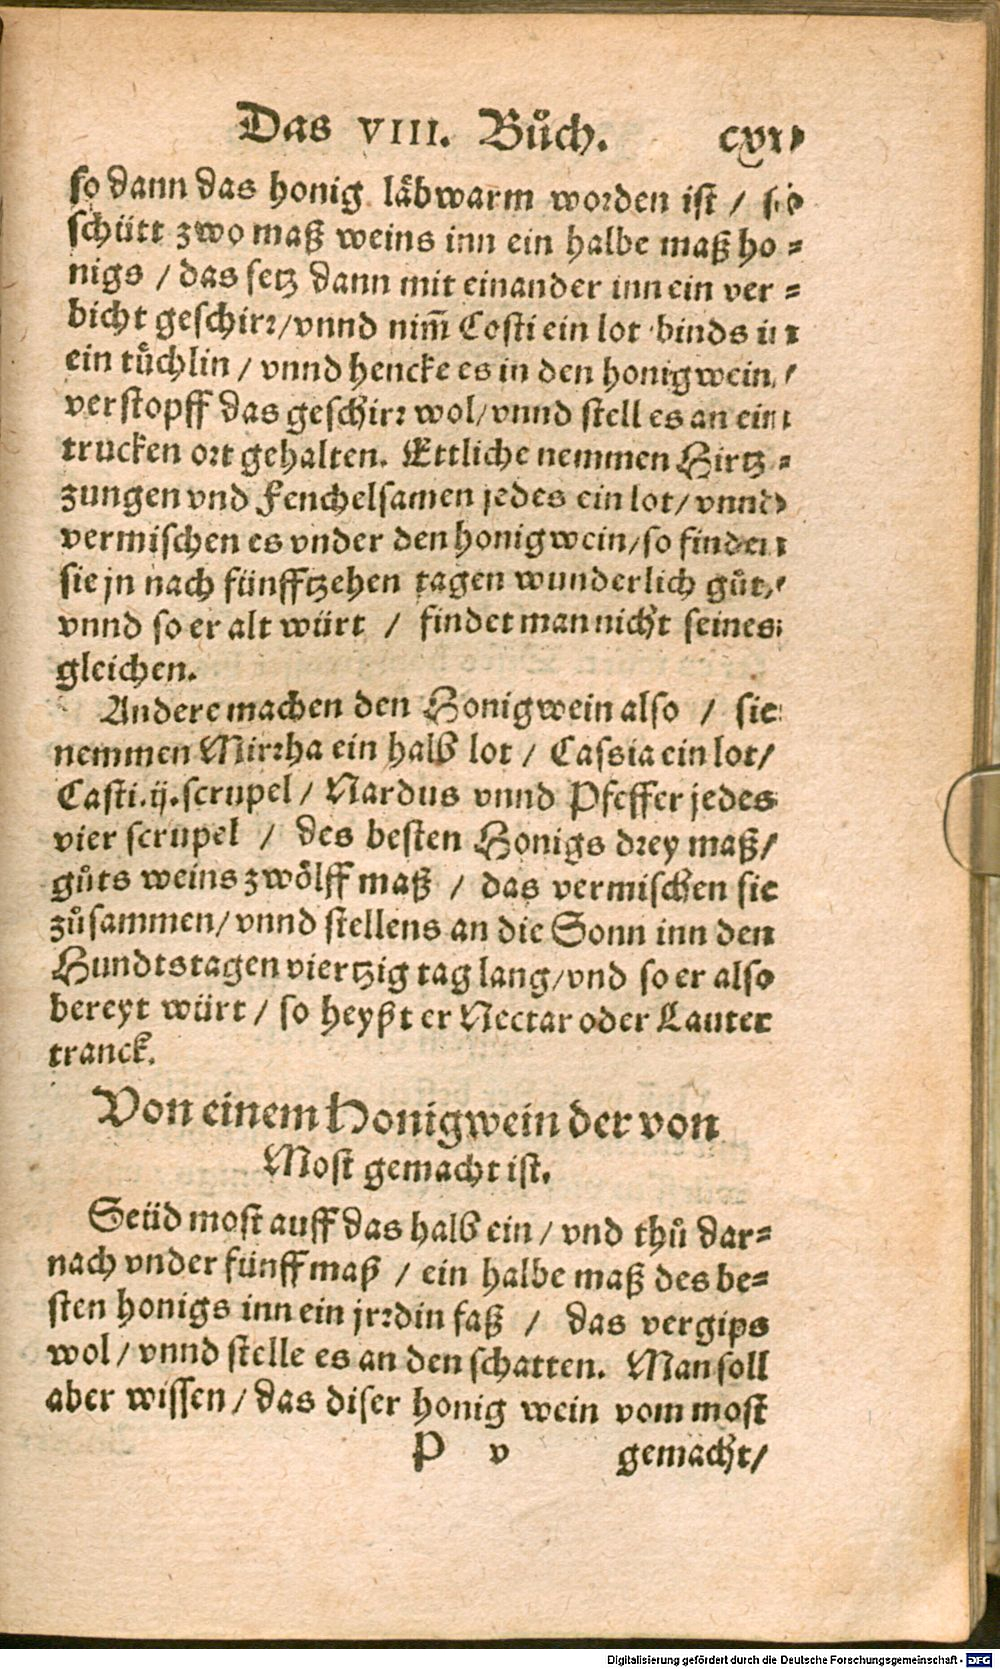 Das VIII. Bůch.
so dann das honig läbwarm worden ist / so
schütt zwo maß weins inn ein halbe maß ho-
nigs / das setz dann mit einander inn ein ver-
bicht geschirr/vnnd nim̃ Costi ein lot binds in
ein tüchlin / vnnd hencke es in den honigwein/
verstopff das geschirr wol/vnnd stell es an ein
trucken ort gehalten. Ettliche nemmen Hirtz-
zungen vnd Fenchelsamen jedes ein lot/ vnnd
vermischen es vnder den honigwein/so finden
sie jn nach fünfftzehen tagen wunderlich gůt/
vnnd so er alt würt / findet man nicht seines
gleichen.
Andere machen den Honigwein also / sie
nemmen Mirrha ein halb lot / Cassia ein lot/
Casti.ij.scrupel / Nardus vnnd Pfeffer jedes
vier scrupel / des besten Honigs drey maß/
gůts weins zwölff maß / das vermischen sie
zůsammen/ vnnd stellens an die Sonn inn den
Hundtstagen viertzig tag lang/vnd so er also
bereyt würt / so heyßt er Nectar oder Lauter
tranck.
Von einem Honigwein der von
Most gemacht ist.
Seüd most auff das halb ein / vnd thů dar-
nach vnder fünff maß / ein halbe maß des be-
sten honigs inn ein jrrdin faß / das vergips
wol / vnnd stelle es an den schatten. Man soll
aber wissen / das diser honig wein vom most
P v gemacht/
Digitalisierung gefördert durch die Deutsche Forschungsgemeinschaft - DFG